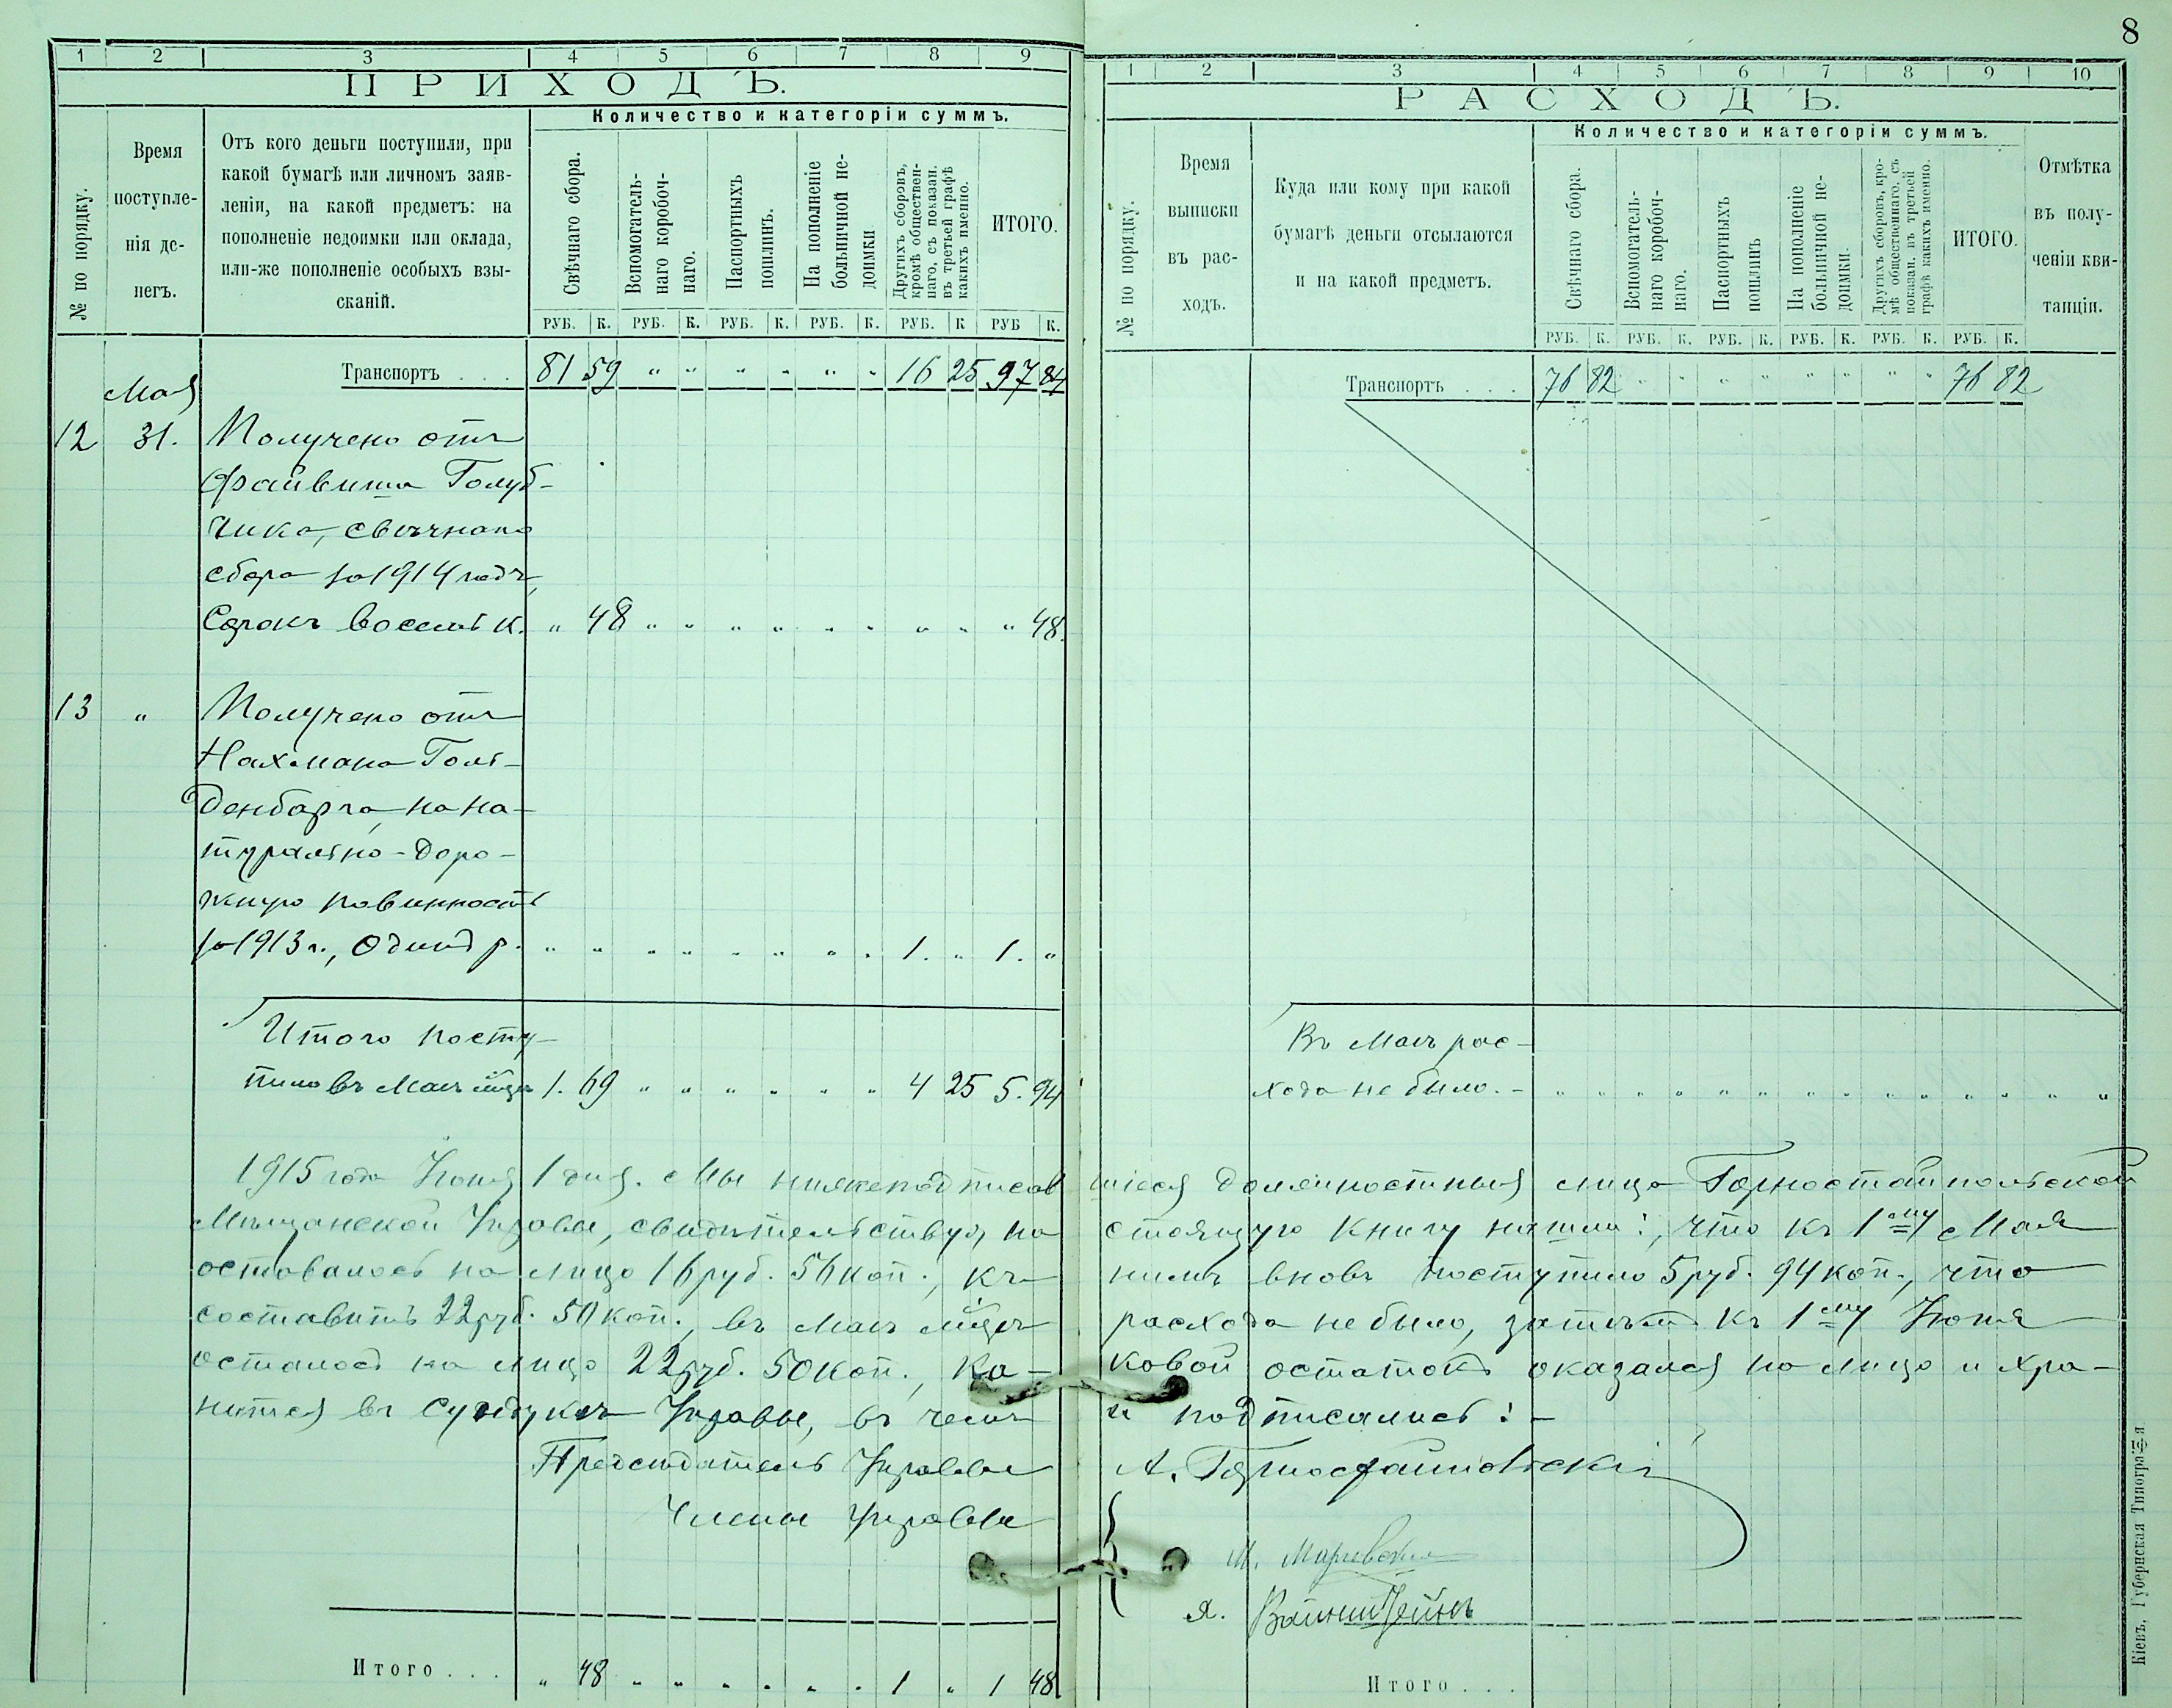 8
1 2 3 4 5 6 7 8 9
ПРИХОДЪ.
Количество и категоріи суммъ.
№ по порядку.
Время
поступле-
нія де-
негъ.
Отъ кого деньги поступили, при
какой бумагѣ или личномъ заяв-
леніи, на какой предметъ: на
пополненіе недоимки или оклада,
или-же пополненіе особыхъ взы-
сканій.
Свѣчнаго сбора.
Вспомогатель-
наго коробоч-
наго.
Паспортныхъ
пошлинъ.
На пополненіе
больничной не-
доимки
Другихъ сборовъ,
кромѣ обществен-
наго, съ показан.
въ третьей графѣ
какихъ именно.
ИТОГО.
РУБ. К. РУБ. К. РУБ. К. РУБ. К. РУБ. К РУБ К.
Транспортъ . . . 81 59 " " " " " " 16 25 97 84
Мая
12 31. Получено отъ
Файвиша Голуб-
чика, свѣчнаго
сбора за 1914 годъ,
Сорокъ восемь к. " 48 " " " " " " " " " 48.
13 " Получено отъ
НахманаГоль-
денбарга, на на-
турально-доро-
жную повинность
за 1913 г., Одинъ р. " " " " " " " " 1. " 1. "
Итого посту-
пило въ Маѣ м̃цѣ 1. 69 " " " " " " 4 25 5. 94
1 2 3 4 5 6 7 8 9 10
РАСХОДЪ.
Количество и категоріи суммъ.
№ по порядку.
Время
выписки
въ рас-
ходъ.
Куда или кому при какой
бумагѣ деньги отсылаются
и на какой предметъ.
Свѣчнаго сбора.
Вспомогатель-
наго коробоч-
наго.
Паспортныхъ
пошлинъ
На пополненіе
больничной не-
доимки.
Другихъ сборовъ, кро-
мѣ общественнаго, съ
показан. въ третьей
графѣ какихъ именно.
ИТОГО.
Отмѣтка
въ полу-
ченіи кви-
танціи.
РУБ. К. РУБ. К. РУБ. К. РУБ. К. РУБ. К. РУБ. К.
Транспортъ . . . 76 82 " " " " " " " " 76 82
Въ Маѣ рас-
хода не было. - " " " " " " " " " " " " "
1915 года Іюня 1 дня. Мы нижеподписавшіеся должностныя лица Горностайпольской
Мѣщанской Управы, свидѣтельствуя настоящую книгу нашли:, что къ 1му Мая
оставалось на лицо 16 руб. 56 коп., къ нимъ вновь поступило 5 руб. 94 коп., что
составитъ 22 руб. 50 коп., въ Маѣ м̃цѣ расхода не было, затѣмъ къ 1му Іюня
осталось на лицо 22 руб. 50 коп., каковой остатокъ оказался на лицо и хра-
нится въ Сундукѣ Управы, въ чемъ и подписались: -
Предсѣдатель Управы А. Горностайпольскій
Члены Управы
М.
Я. Вайнштейнъ
Итого . . . " 48 " " " " " " 1 " 1 48
Итого . . .
Кіевъ, Губернская Типографія